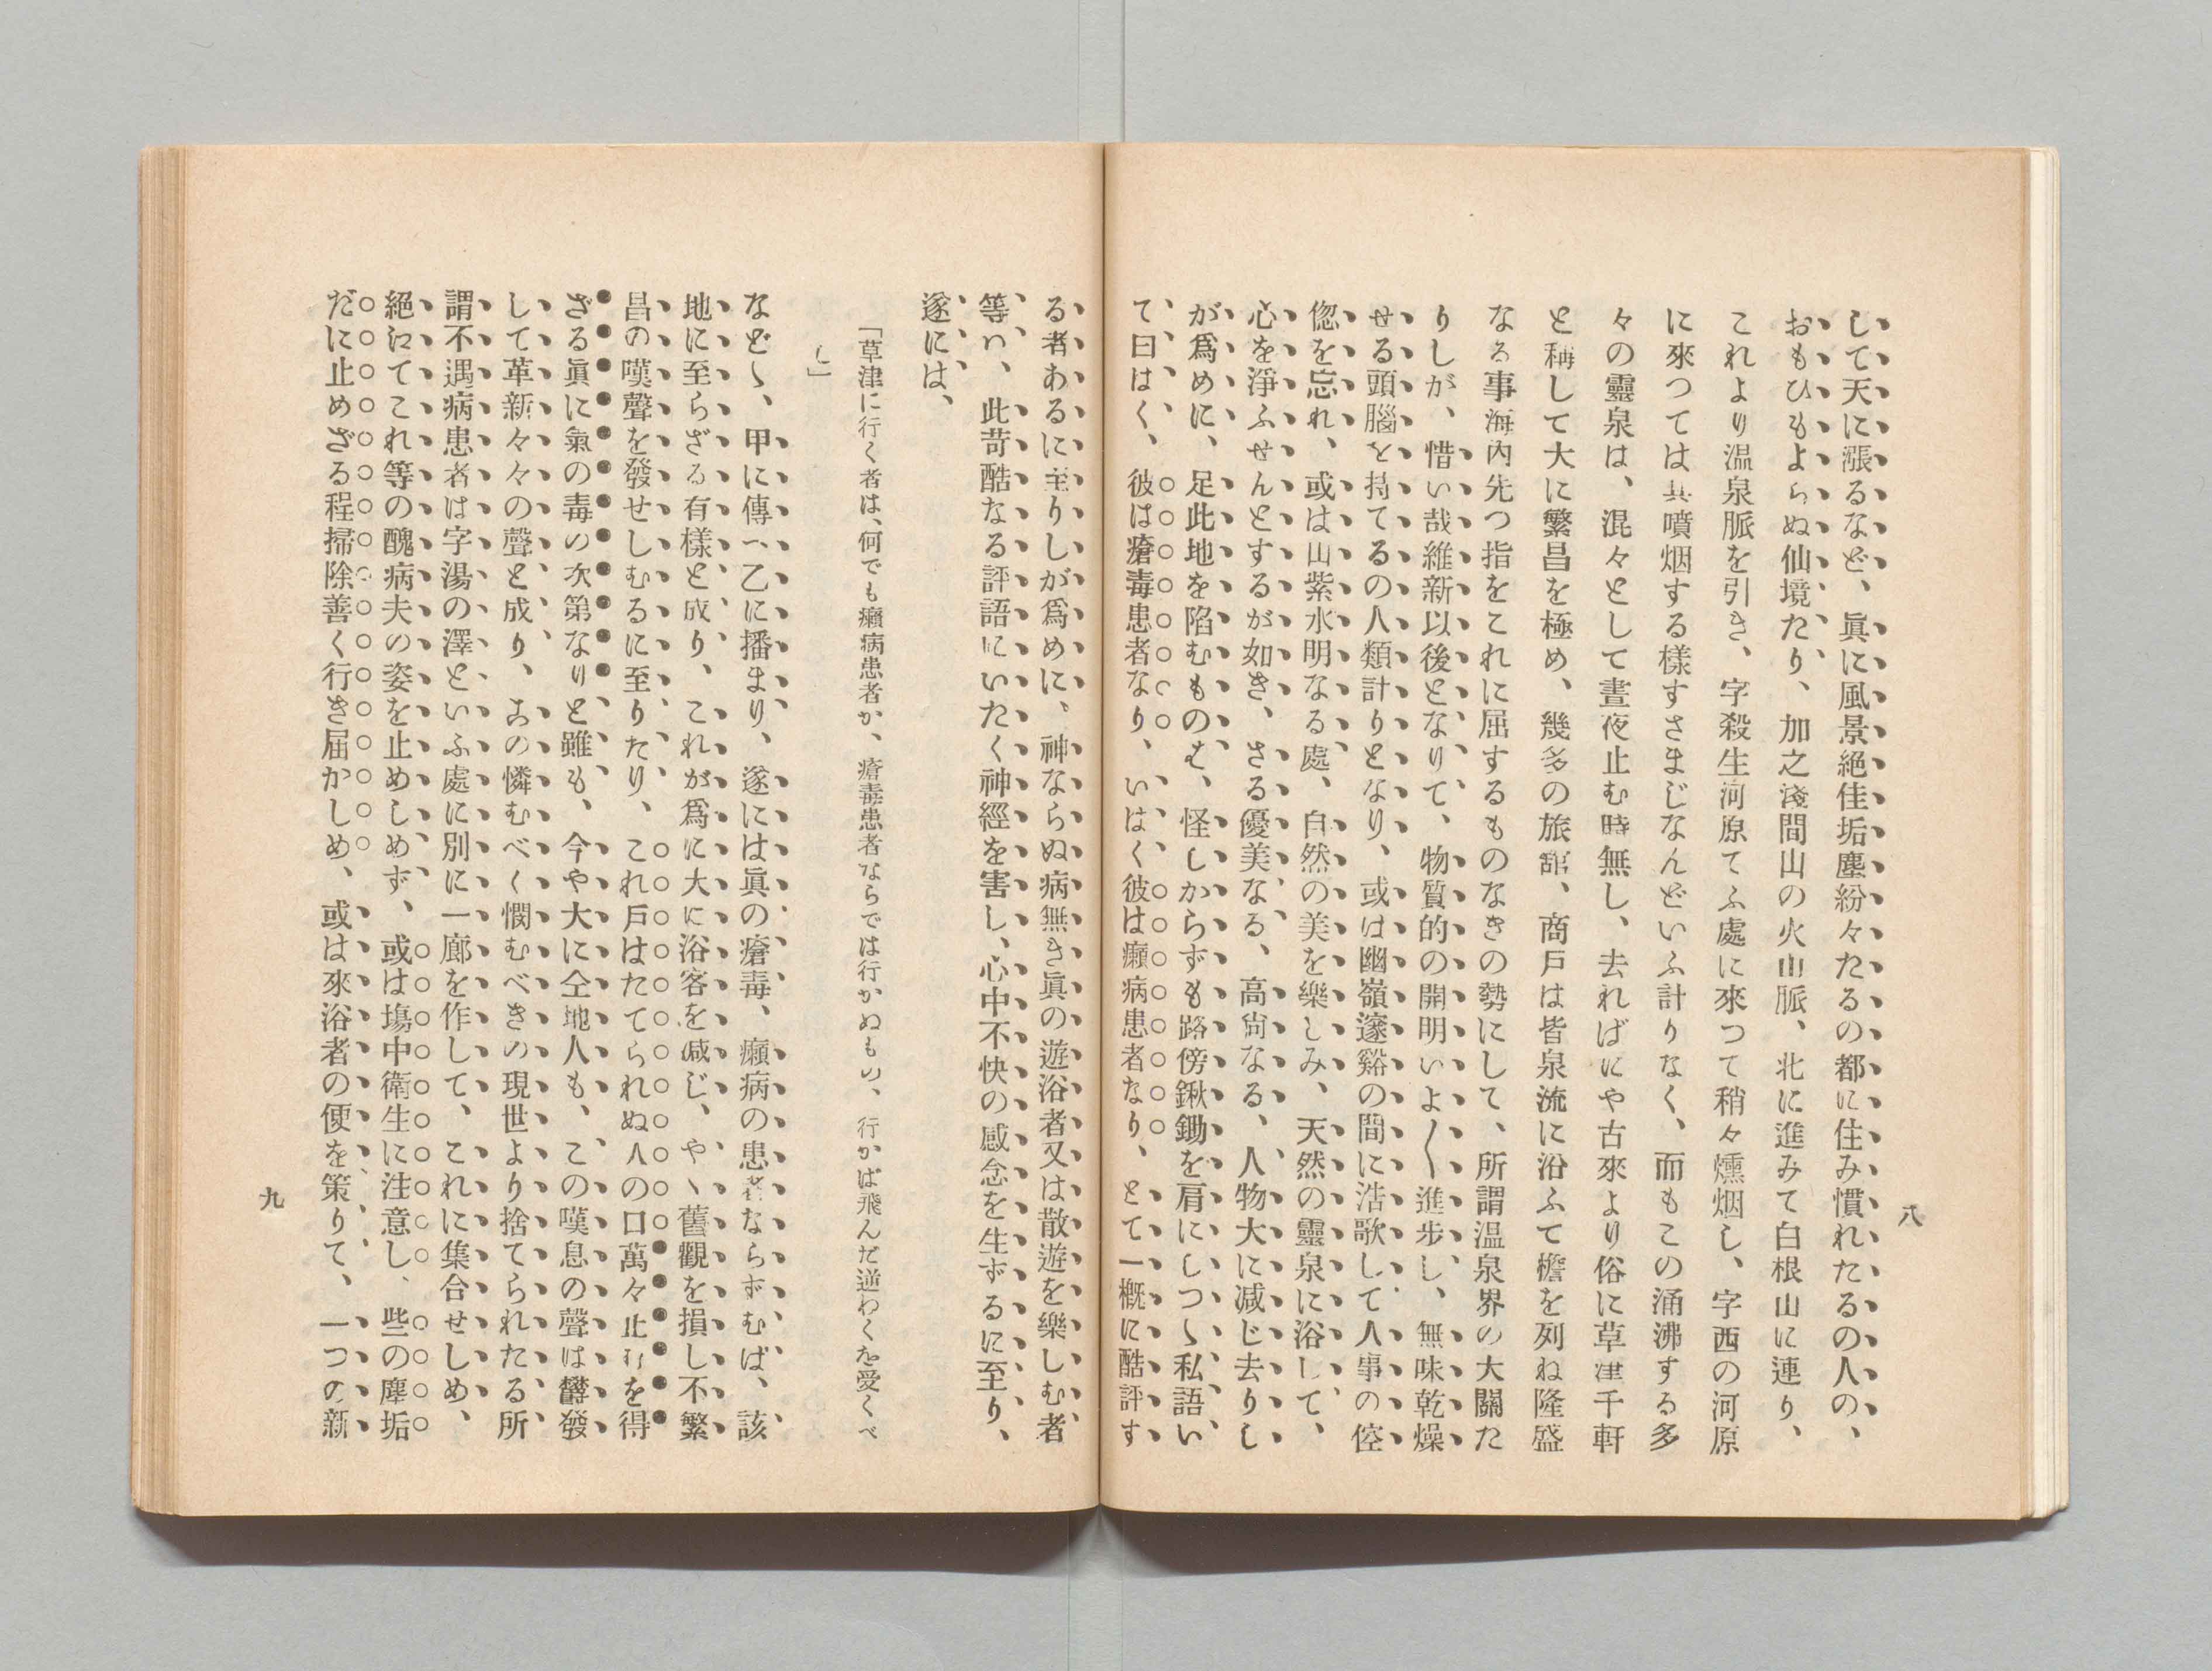 八
して天に漲るなど、眞に風景絶佳垢塵紛々たるの都に住み慣れたるの人の、
おもひもよらぬ仙境たり、加之淺間山の火山脈、北に進みて白根山に連り、
これより温泉脈を引き、字殺生河原てふ處に來つて稍々燻烟し、字西の河原
に來つては其噴烟する樣すさまじなんどいふ計りなく、而もこの涌沸する多
々の靈泉は、混々として晝夜止む時無し、去ればにや古來より俗に草津千軒
と稱して大に繁昌を極め、幾多の旅舘、商戸は皆泉流に沿ふて檐を列ね隆盛
なる事海内先つ指をこれに屈するものなきの勢にして、所謂温泉界の大關た
りしが、惜い哉維新以後となりて、物質的の開明いよ〱進歩し、無味乾燥
せる頭腦を持てるの人類計りとなり、或は幽嶺邃谿の間に浩歌して人事の倥
偬を忘れ、或は山紫水明なる處、自然の美を樂しみ、天然の靈泉に浴して、
心を淨ふせんとするが如き、さる優美なる、高尚なる、人物大に减じ去りし
が爲めに、足此地を陷むものを、怪しからずも路傍鍬鋤を肩にしつゝ私語い
て曰はく、彼は瘡毒患者なり、いはく彼は癩病患者なり、とて一概に酷評す
る者あるに至りしが爲めに、神ならぬ病無き眞の遊浴者又は散遊を樂しむ者
等い、此苛酷なる評語にいたく神經を害し、心中不快の感念を生ずるに至り、
遂には、
「草津に行く者は、何でも癩病患者か、瘡毒患者ならでは行かぬもの、行かば飛んだ逆わくを受くべ
し」
などゝ、甲に傳へ乙に播まり、遂には眞の瘡毒、癩病の患者ならずむば、該
地に至らざる有樣と成り、これが爲に大に浴客を减じ、やゝ舊觀を損し不繁
昌の嘆聲を發せしむるに至りたり、これ戸はたてられぬ人の口萬々止むを得
ざる眞に氣の毒の次第なりと雖も、今や大に仝地人も、この嘆息の聲は欝發
して革新々々の聲と成り、あの憐むべく憫むべきの現世より捨てられたる所
謂不遇病患者は字湯の澤といふ處に別に一廊を作して、これに集合せしめ、
絶江てこれ等の醜病夫の姿を止めしめず、或は塲中衛生に注意し、些の塵垢
だに止めざる程掃除善く行き届かしめ、或は來浴者の便を策りて、一つの新
九